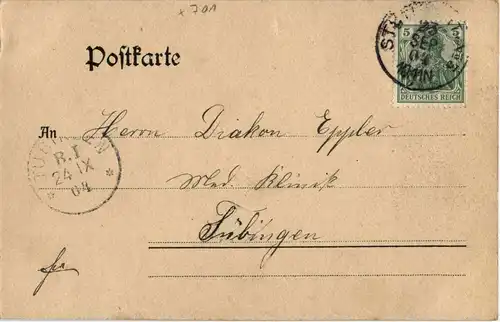 x 701
Postkarte
23
SEP
04
5 5
DEUTSCHES REICH
An Herrn Diakon Eppler
R.I
24 IX
04
Med. Klinik
Tübingen